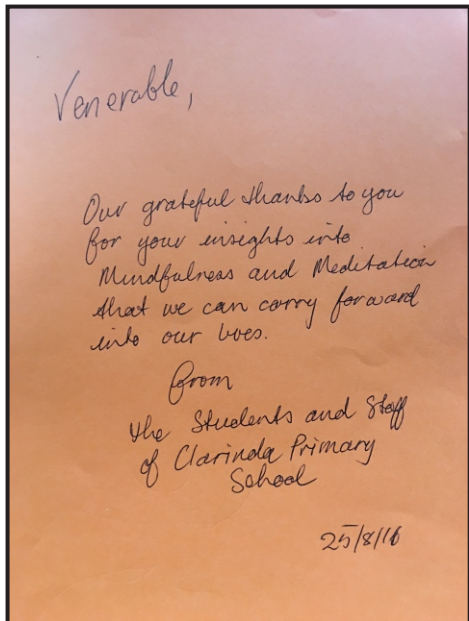 Venerable,
Our grateful thanks to you
for your insights into
Mindfulness and Meditation
that we can carry forward
into our lives.
from
the Students and Staff
of Clarinda Primary
School
25/8/16